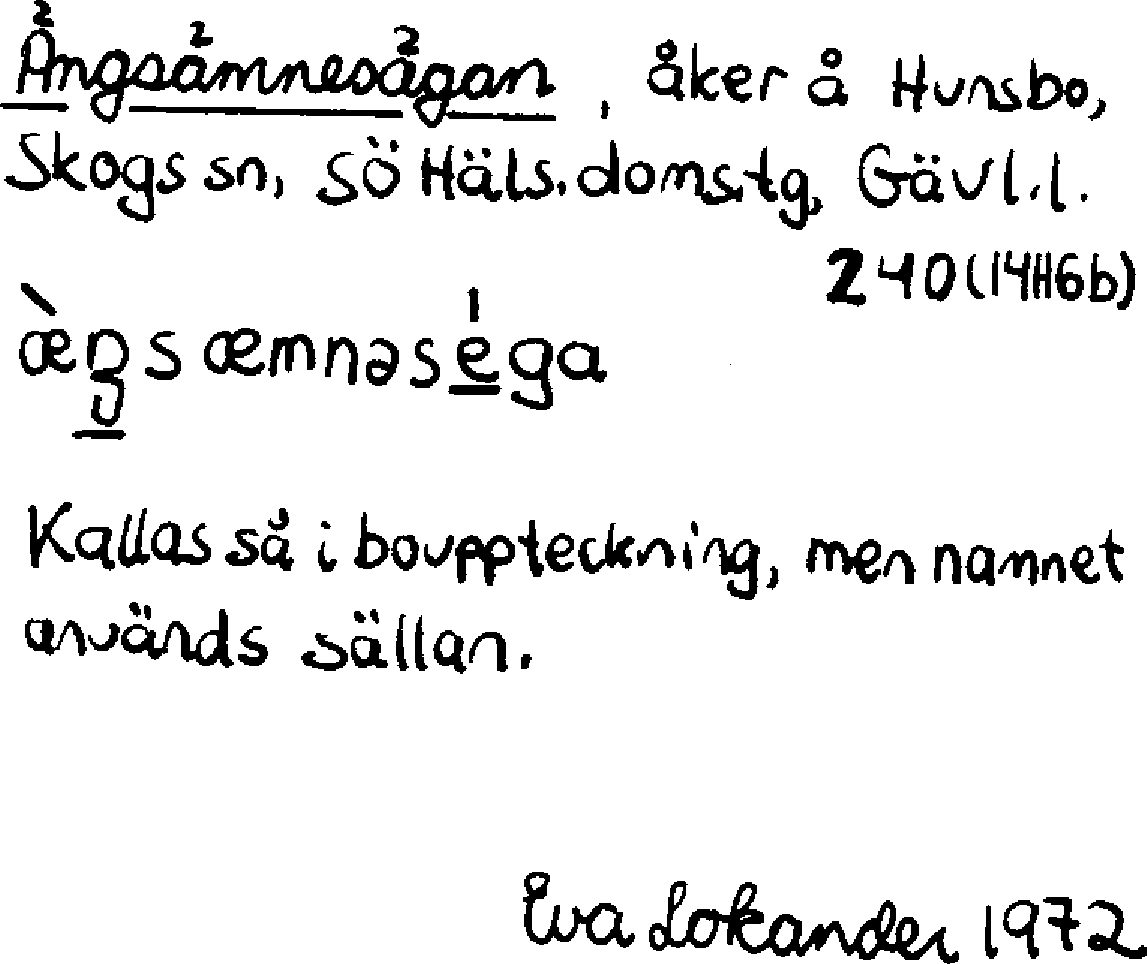 Ängsämnesägan, åker å Hunsbo,
Skogs sn, sö Häls. domstg, Gävl.l.
240 (14H6b)
æ̀ŋsæmnəséga
Kallas så i bouppteckning, men namnet
används sällan.
Eva Lokander 1972